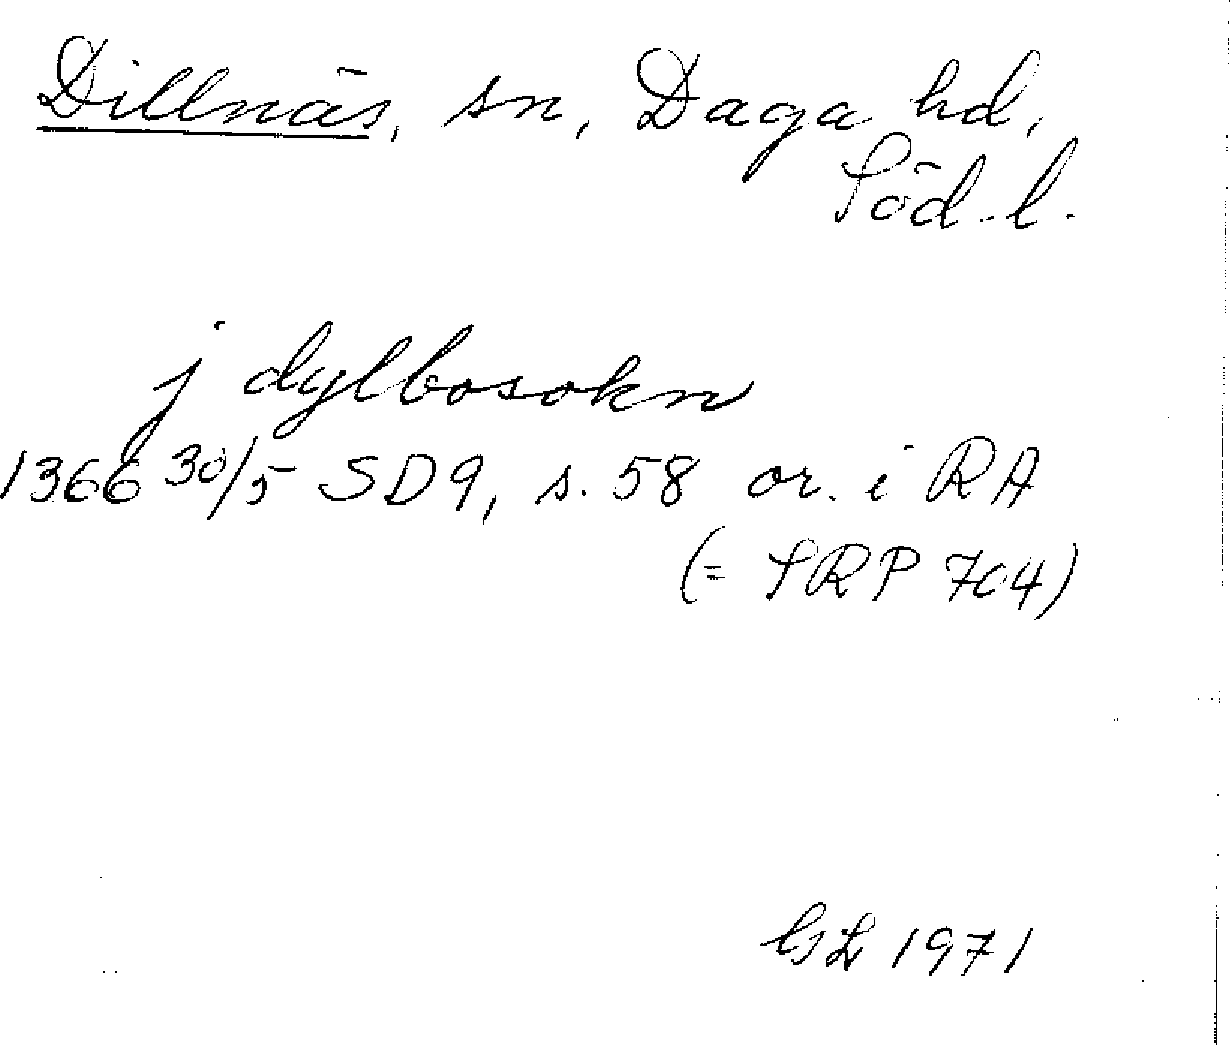 Dillnäs, sn, Daga hd,
Söd. l.
j dylbosokn
1366 30/5 SD 9, s. 58 or. i RA
(= SRP 704)
GL 1971